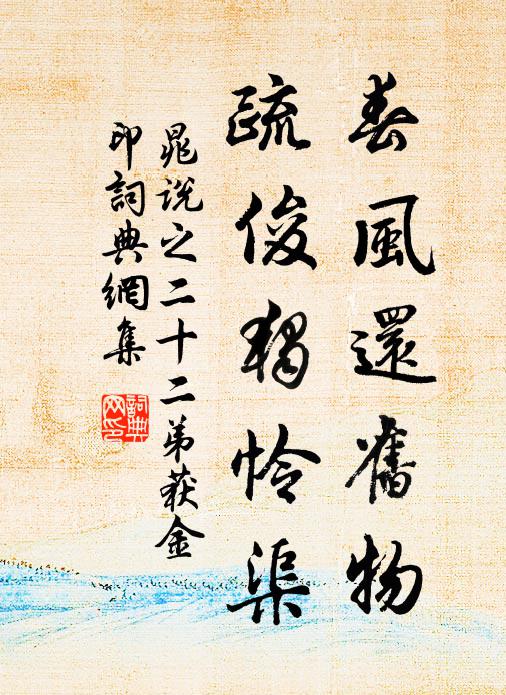 春風還舊物
疏俊獨怜渠
晁說之二十二弟获金
印詞典網集
詞典
网印